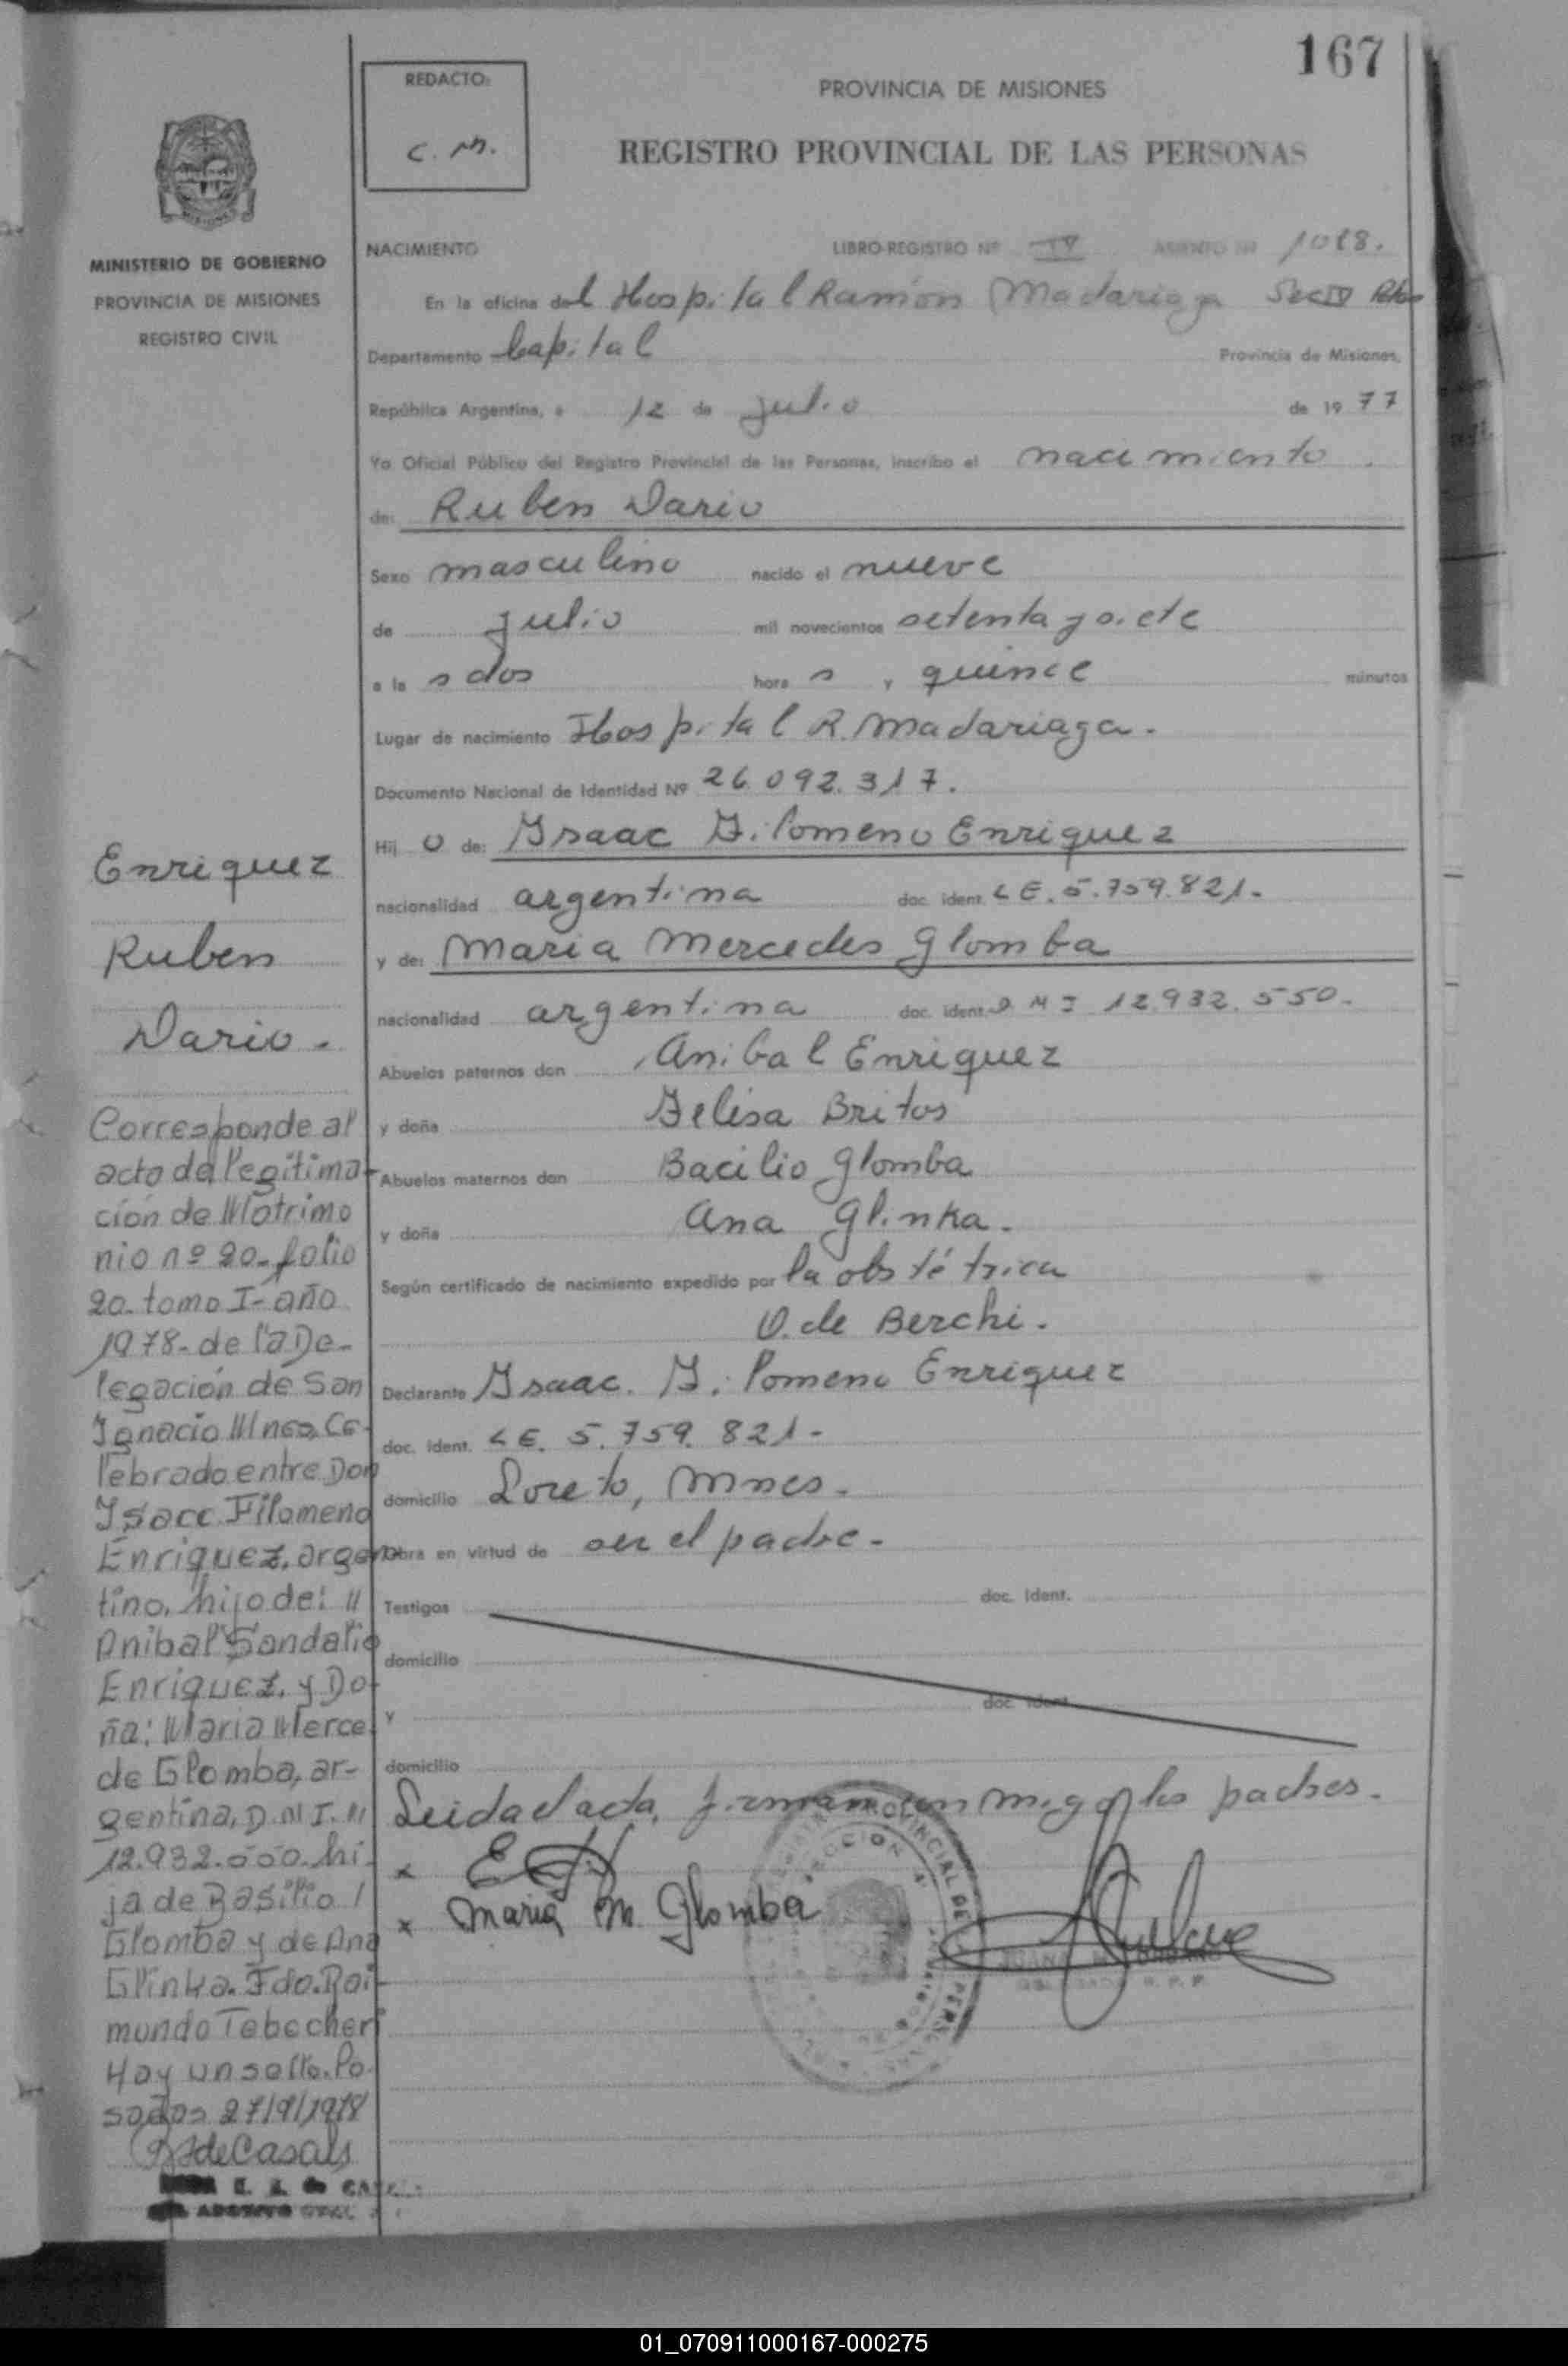 167
REDACTO:
C. M.
PROVINCIA DE MISIONES
REGISTRO PROVINCIAL DE LAS PERSONAS
MINISTERIO DE GOBIERNO
PROVINCIA DE MISIONES
REGISTRO CIVIL
NACIMIENTO LIBRO-REGISTRO Nº IV ASIENTO Nº 1018.
En la oficina del Hospital Ramón Madariaga Secc IV Pdas
Departamento Capital Provincia de Misiones,
República Argentina, a 12 de julio de 19 77
Yo Oficial Público del Registro Provincial de las Personas, inscribo el nacimiento.
de: Ruben Dario
Sexo masculino nacido el nueve
de julio mil novecientos setenta y siete
a la s dos hora s y quince minutos
Lugar de nacimiento Hospital R. Madariaga.
Documento Nacional de Identidad Nº 26.092.317.
Hij o de: Isaac Filomeno Enriquez
nacionalidad argentina doc. ident. LE. 5.759.821.-
y de: Maria Mercedes Glomba
nacionalidad argentina doc. ident. D N I 12.932.550.-
Abuelos paternos don Anibal Enriquez
y doña Felisa Britos
Abuelos maternos don Bacilio Glomba
y doña Ana Glinka.
Según certificado de nacimiento expedido por la obstétrica
O. de Berchi.
Declarante Isaac. Filomeno Enriquez
doc. ident. LE. 5.759.821-
domicilio Loreto, Mnes.
Obra en virtud de ser el padre.
Testigos doc. ident.
domicilio
y doc. ident.
domicilio
Leida el acta, firman conmigo los padres.
x
x Maria M. Glomba
Enriquez
Ruben
Dario.
Corresponde al
acto de legitima-
ción de Matrimo
nio nº 20- folio
20- tomo I- año
1978- de la De-
legación de San
Ignacio Mnes, Ce-
lebrado entre Don
Isacc Filomeno
Enriquez, argen-
tino, hijo de: "
Anibal Sandalio
Enriquez, y Do-
ña: Maria Merce
de Glomba, ar-
gentina, D.N.I. "
12.932.550. hi-
ja de Basilio /
Glomba y de Ana
Glinka. Fdo. Rai-
mundo
Hay un sello. Po-
sadas 27/9/1978
de Casals
01_070911000167-000275